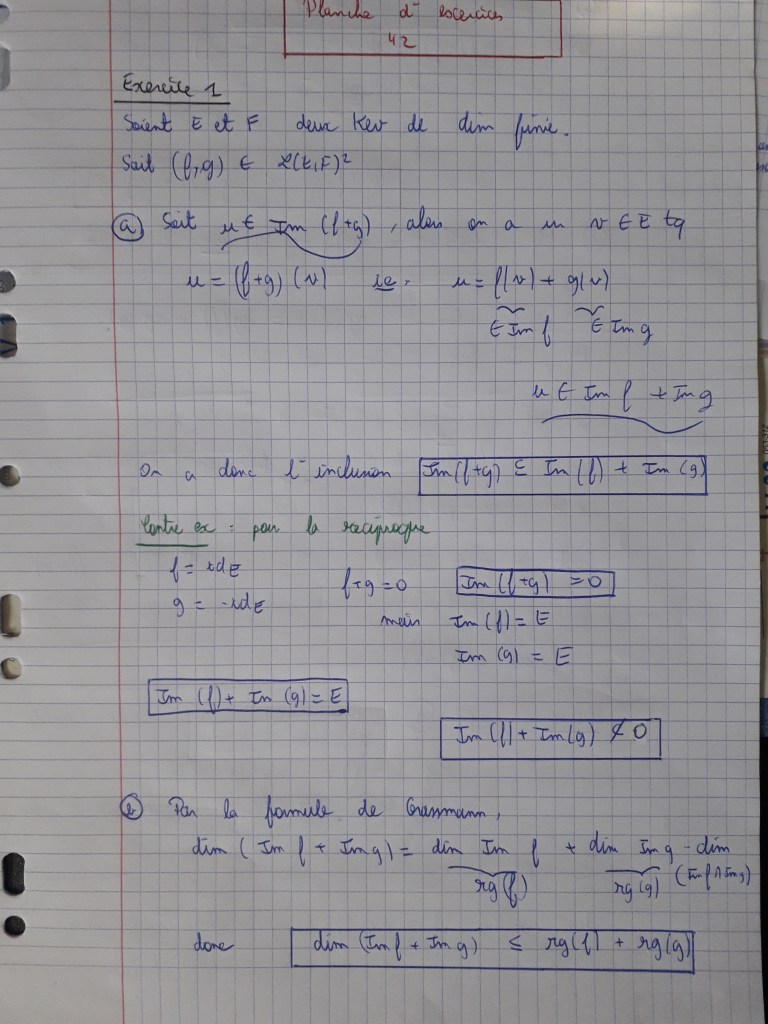 Planche d'exercices
42
Exercice 1
Soient E et F deux Kev de dim finie.
Soit (f,g) ∈ L(E,F)²
a) Soit u ∈ Im (f+g), alors on a un v ∈ E tq
u = (f+g) (v) ie. u = f(v) + g(v)
∈ Im f ∈ Im g
u ∈ Im f + Im g
On a donc l'inclusion Im(f+g) ⊆ Im (f) + Im (g)
Contre ex : pour la réciproque
f = id_E
g = -id_E
f+g = 0 Im (f+g) = 0
mais Im (f) = E
Im (g) = E
Im (f) + Im (g) = E
Im (f) + Im (g) ⊄ 0
b) Par la formule de Grassmann,
dim ( Im f + Im g) = dim Im f + dim Im g - dim
rg(f) rg(g) (Im f ∩ Im g)
donc dim (Im f + Im g) ≤ rg(f) + rg(g)